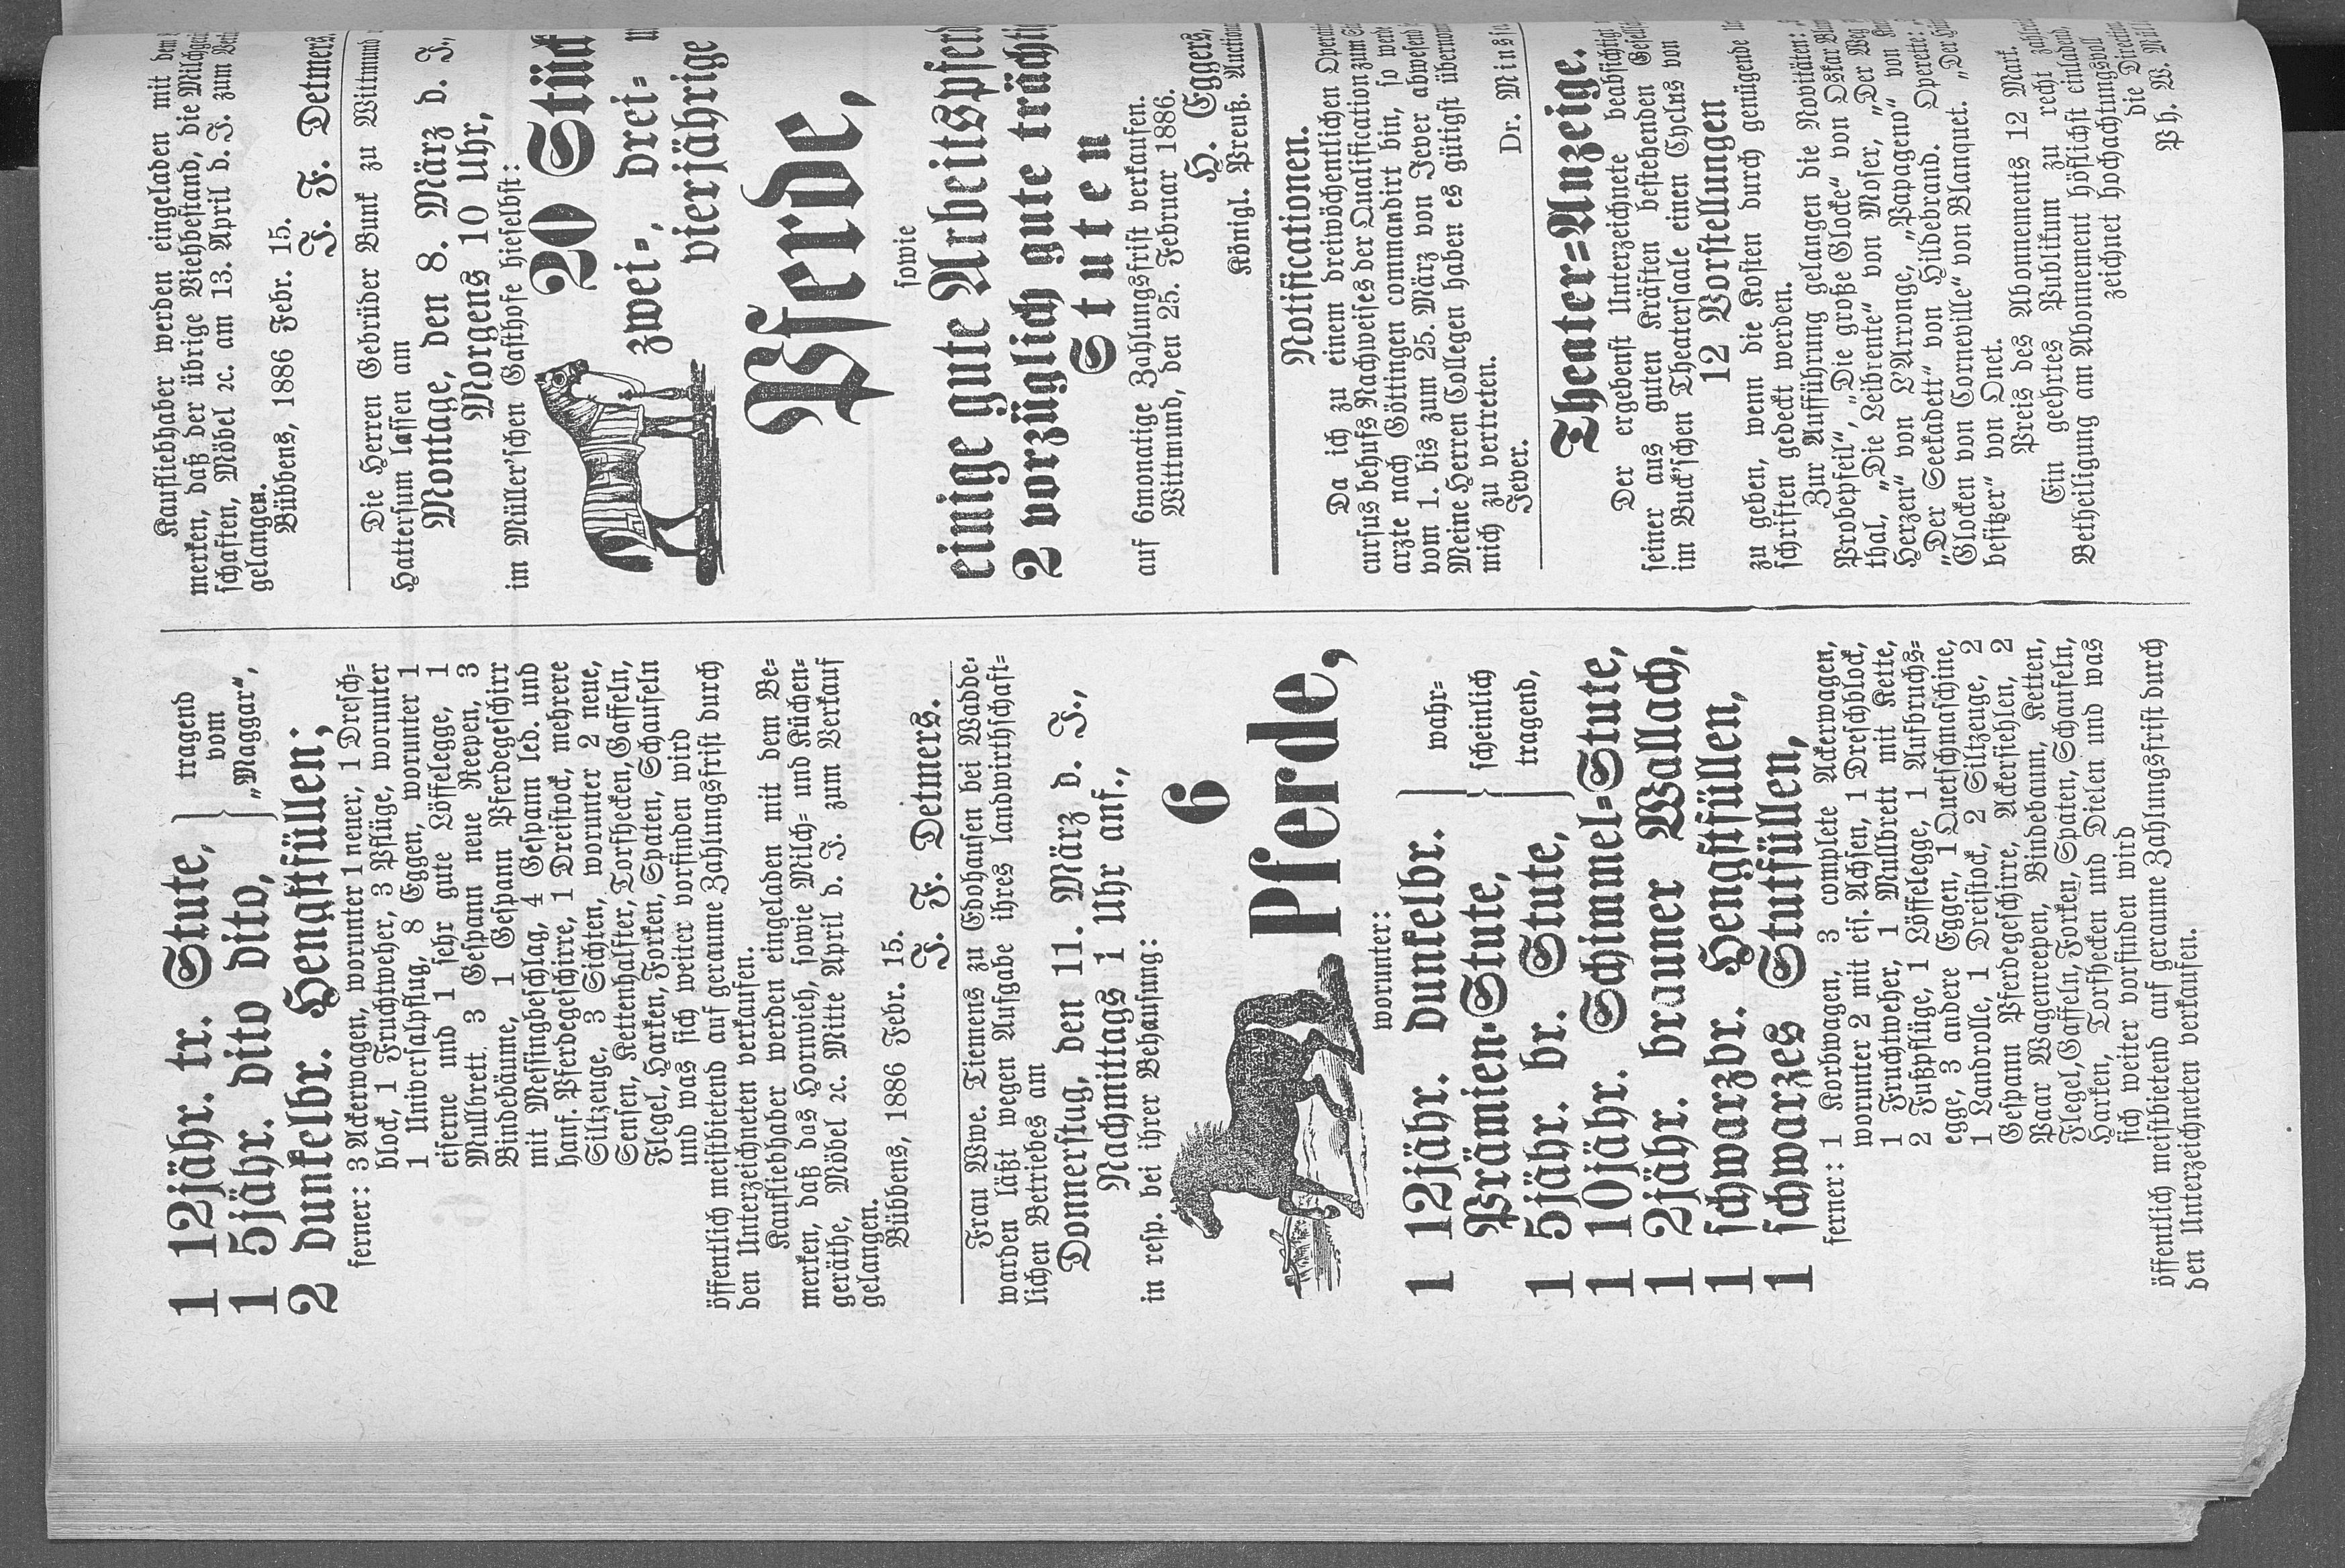 1 12jähr. tr. Stute, tragend
1 5jähr. dito dito, vom „Maggar“,
2 dunkelbr. Hengstfüllen;
ferner: 3 Ackerwagen, worunter 1 neuer, 1 Dresch=
block, 1 Fruchtweher, 3 Pflüge, worunter
1 Universalpflug, 8 Eggen, worunter 1
eiserne und 1 sehr gute Löffelegge, 1
Mullbrett. 3 Gespann neue Reepen, 3
Bindebäume, 1 Gespann Pferdegeschirr
mit Messingbeschlag, 4 Gespann led. und
hanf. Pferdegeschirre, 1 Dreistock, mehrere
Siltzeuge, 3 Sichten, worunter 2 neue,
Sensen, Kettenhalfter, Torfhecken, Gaffeln,
Flegel, Harken, Forken, Spaten, Schaufeln
und was sich weiter vorfinden wird
öffentlich meistbietend auf geraume Zahlungsfrist durch
den Unterzeichneten verkaufen.
Kaufliebhaber werden eingeladen mit dem Be=
merken, daß das Hornvieh, sowie Milch= und Küchen=
geräthe, Möbel 2c. Mitte April d. J. zum Verkauf
gelangen.
Bübbens, 1886 Febr. 15.
J. F. Detmers.
Frau Wwe. Tiemens zu Edohausen bei Wadde=
warden läßt wegen Aufgabe ihres landwirthschaft=
lichen Betriebes am
Donnerstag, den 11. März d. J.,
Nachmittags 1 Uhr anf.,
in resp. bei ihrer Behausung:
6
Pferde,
worunter:
1 12jähr. dunkelbr. Prämien=Stute, wahr=
1 5jähr. br. Stute, scheinlich tragend,
1 10jähr. Schimmel=Stute,
1 2jähr. brauner Wallach,
1 schwarzbr. Hengstfüllen,
1 schwarzes Stutfüllen,
ferner: 1 Korbwagen, 3 complete Ackerwagen,
worunter 2 mit eis. Achsen, 1 Dreschblock,
1 Fruchtweher, 1 Mullbrett mit Kette,
2 Fußpflüge, 1 Löffelegge, 1 Aufbruchs=
egge, 3 andere Eggen, 1 Quetschmaschine,
1 Landrolle, 1 Dreistock, 2 Siltzeuge, 2
Gespann Pferdegeschirre, Ackersiehlen, 2
Paar Wagenreepen, Bindebaum, Ketten,
Flegel, Gaffeln, Forken, Spaten, Schaufeln,
Harken, Torfhecken und Dielen und was
sich weiter vorfinden wird
öffentlich meistbietend auf geraume Zahlungsfrist durch
den Unterzeichneten verkaufen.
Kaufliebhaber werden eingeladen mit dem
merken, daß der übrige Viehbestand, die Milchgerä
schaften, Möbel 2c. am 13. April d. J. zum Verk
gelangen.
Bübbens, 1886 Febr. 15.
J. F. Detmers.
Die Herren Gebrüder Bunk zu Wittmund
Hattersum lassen am
Montage, den 8. März d. J.,
Morgens 10 Uhr,
im Müller'schen Gasthofe hieselbst:
20 Stück
zwei=, drei= u
vierjährige
Pferde,
sowie
einige gute Arbeitspferd
2 vorzüglich gute trächti
Stuten
auf 6monatige Zahlungsfrist verkaufen.
Wittmund, den 25. Februar 1886.
H. Eggers,
Königl. Preuß. Auction
Notificationen.
Da ich zu einem dreiwöchentlichen Operati
cursus behufs Nachweises der Qualification zum S
arzte nach Göttingen commandirt bin, so werd
vom 1. bis zum 25. März von Jever abwesend
Meine Herren Collegen haben es gütigst übernom
mich zu vertreten.
Jever. Dr. Minss
Theater=Anzeige.
Der ergebenst Unterzeichnete beabsichtigt
seiner aus guten Kräften bestehenden Gesell
im Buck'schen Theatersaale einen Cyclus von
12 Vorstellungen
zu geben, wenn die Kosten durch genügende
schriften gedeckt werden.
Zur Aufführung gelangen die Novitäten:
Probepfeil“, „Die große Glocke“ von Oskar Blu
thal, „Die Leibrente“ von Moser, „Der Weg
Herzen“ von L'Arronge, „Papageno“ von
„Der Seekadett“ von Hildebrand. Operette:
Glocken von Corneville“ von Blanquet. „Der
besitzer“ von Onet.
Preis des Abonnements 12 Mark.
Ein geehrtes Publikum zu recht
Betheiligung am Abonnement höflichst einladend,
zeichnet hochachtungsvoll
die Direction
Ph. W.